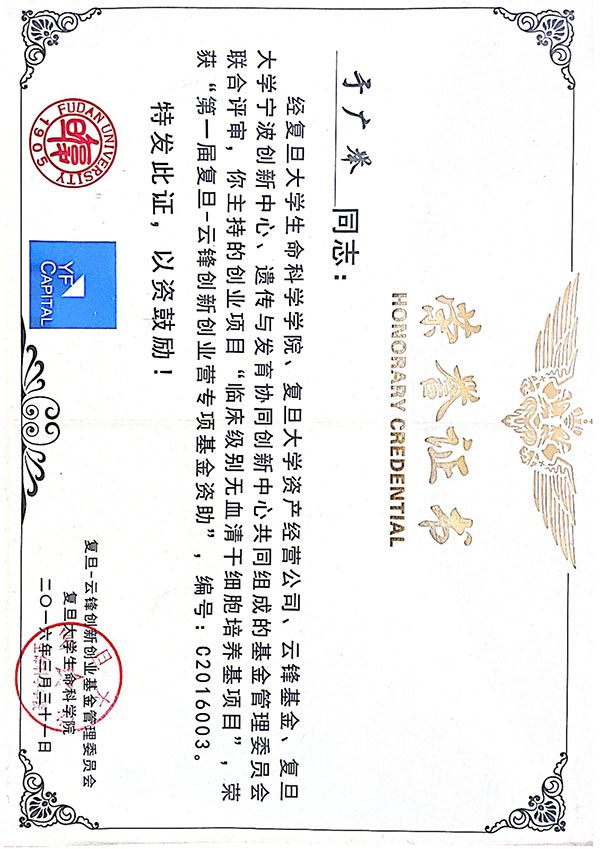 荣誉证书
HONORARY CREDENTIAL
于广举 同志：
经复旦大学生命科学学院、复旦大学资产经营公司、云锋基金、复旦
大学宁波创新中心、遗传与发育协同创新中心共同组成的基金管理委员会
联合评审，你主持的创业项目“临床级别无血清干细胞培养基项目”，荣
获“第一届复旦-云锋创新创业营专项基金资助”，编号：C2016003。
特发此证，以资鼓励！
FUDAN UNIVERSITY
1905
YF
CAPITAL
复旦-云锋创新创业基金管理委员会
复旦大学生命科学院
二〇一六年三月三十一日